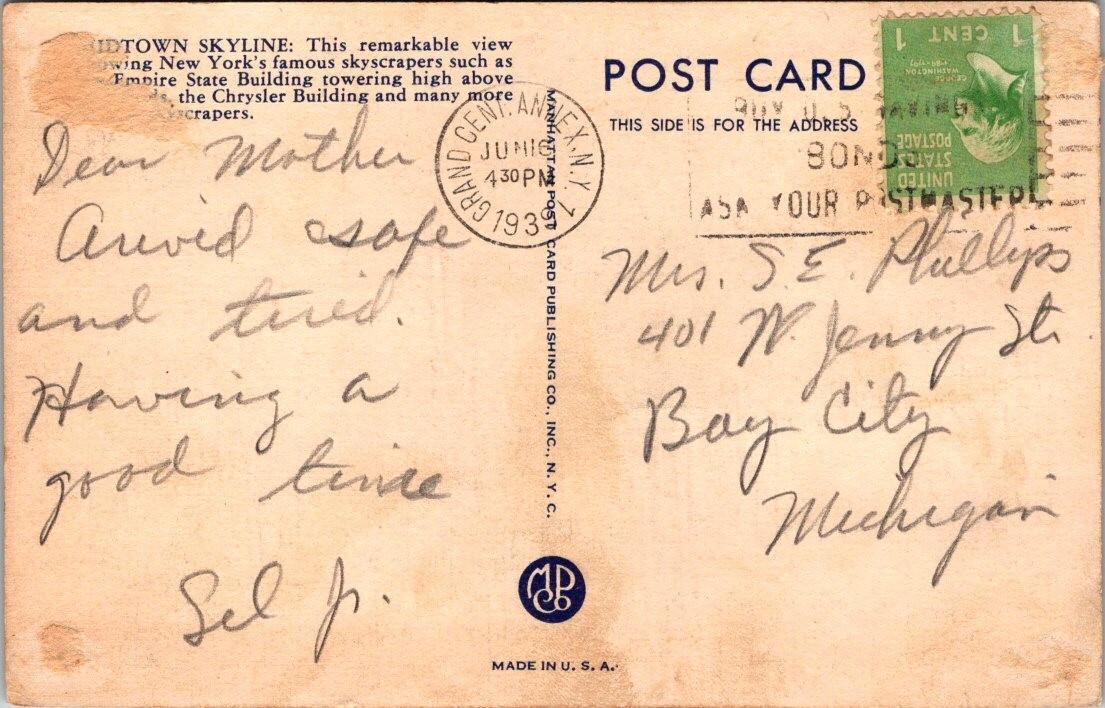 IDTOWN SKYLINE: This remarkable view
wing New York's famous skyscrapers such as
Empire State Building towering high above
the Chrysler Building and many more
scrapers.
Dear Mother
Arivd safe
and tired.
Having a
good time
Sel Jr.
GRAND CENT. ANNEX. N.Y.
JUN 16
4 30 PM
1939
MANHATTAN POST CARD PUBLISHING CO., INC., N. Y. C.
MPCo
MADE IN U. S. A.
POST CARD
THIS SIDE IS FOR THE ADDRESS
BUY U.S. SAVINGS
BONDS
ASK YOUR POSTMASTER
1 CENT 1
GEORGE WASHINGTON
1789-1797
UNITED
STATES
POSTAGE
Mrs. S. E. Phillips
401 W. Jenny St.
Bay City
Michigan